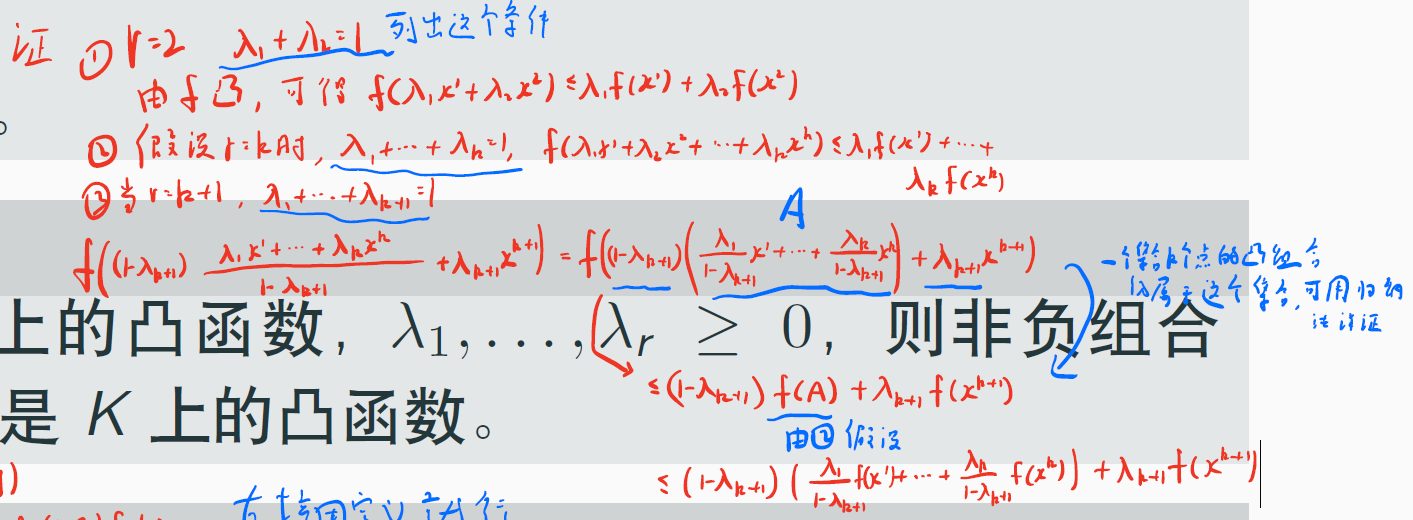 证 ① r=2 λ₁+λ₂=1 列出这个条件
由 f 凸, 可得 f(λ₁x¹+λ₂x²)≤λ₁f(x¹)+λ₂f(x²)
②假设 r=k时, λ₁+⋯+λₖ=1, f(λ₁x¹+λ₂x²+⋯+λₖxᵏ)≤λ₁f(x¹)+⋯+
λₖf(xᵏ)
③当 r=k+1, λ₁+⋯+λₖ₊₁=1
A
f((1-λₖ₊₁) (λ₁x¹+⋯+λₖxᵏ)/(1-λₖ₊₁) +λₖ₊₁xᵏ⁺¹) = f((1-λₖ₊₁)(λ₁/(1-λₖ₊₁) x¹+⋯+λₖ/(1-λₖ₊₁) xᵏ)+λₖ₊₁xᵏ⁺¹)
一个集合k个点的凸组合
仍属于这个集合,可用归纳
法证
上的凸函数, λ₁,...,λᵣ ≥ 0, 则非负组合
≤(1-λₖ₊₁)f(A)+λₖ₊₁f(xᵏ⁺¹)
是 K 上的凸函数。
由②假设
≤(1-λₖ₊₁)(λ₁/(1-λₖ₊₁) f(x¹)+⋯+λₖ/(1-λₖ₊₁) f(xᵏ))+λₖ₊₁f(xᵏ⁺¹)